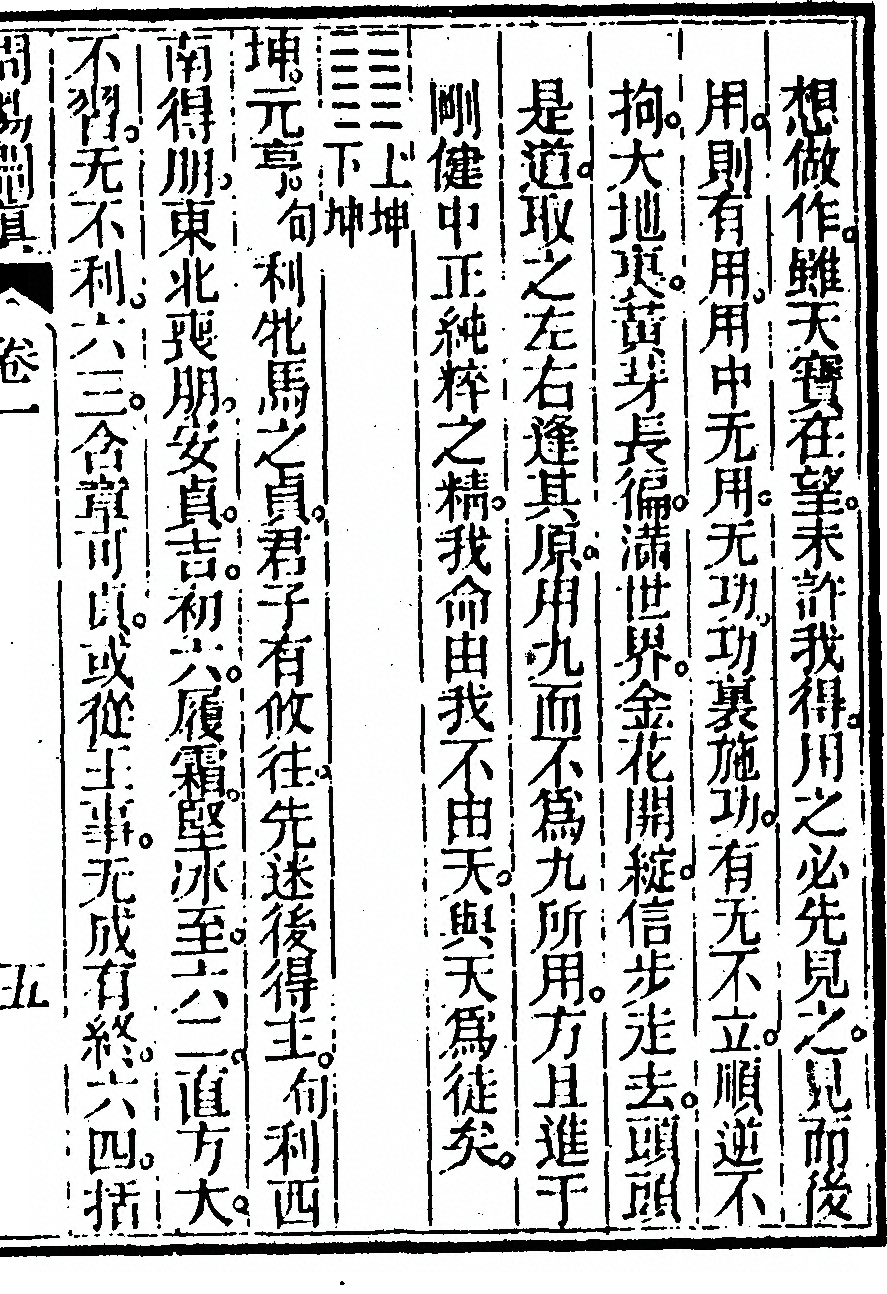 想做作。雖天寶在望。未許我得。用之必先見之。見而後
用。則有用。用中无用。无功功裏施功。有无不立。順逆不
拘。大地裏。黃芽長徧。滿世界。金花開綻。信步走去。頭頭
是道。取之左右逢其原。用九而不爲九所用。方且進于
剛健中正純粹之精。我命由我不由天。與天爲徒矣。
上坤
下坤
坤。元亨。句利牝馬之貞。君子有攸往。先迷後得主。句利西
南得朋。東北喪朋。安貞。吉。初六。履霜。堅冰至。六二。直方大。
不習。无不利。六三。含章可貞。或從王事。无成有終。六四。括
周易闡真
卷一
五